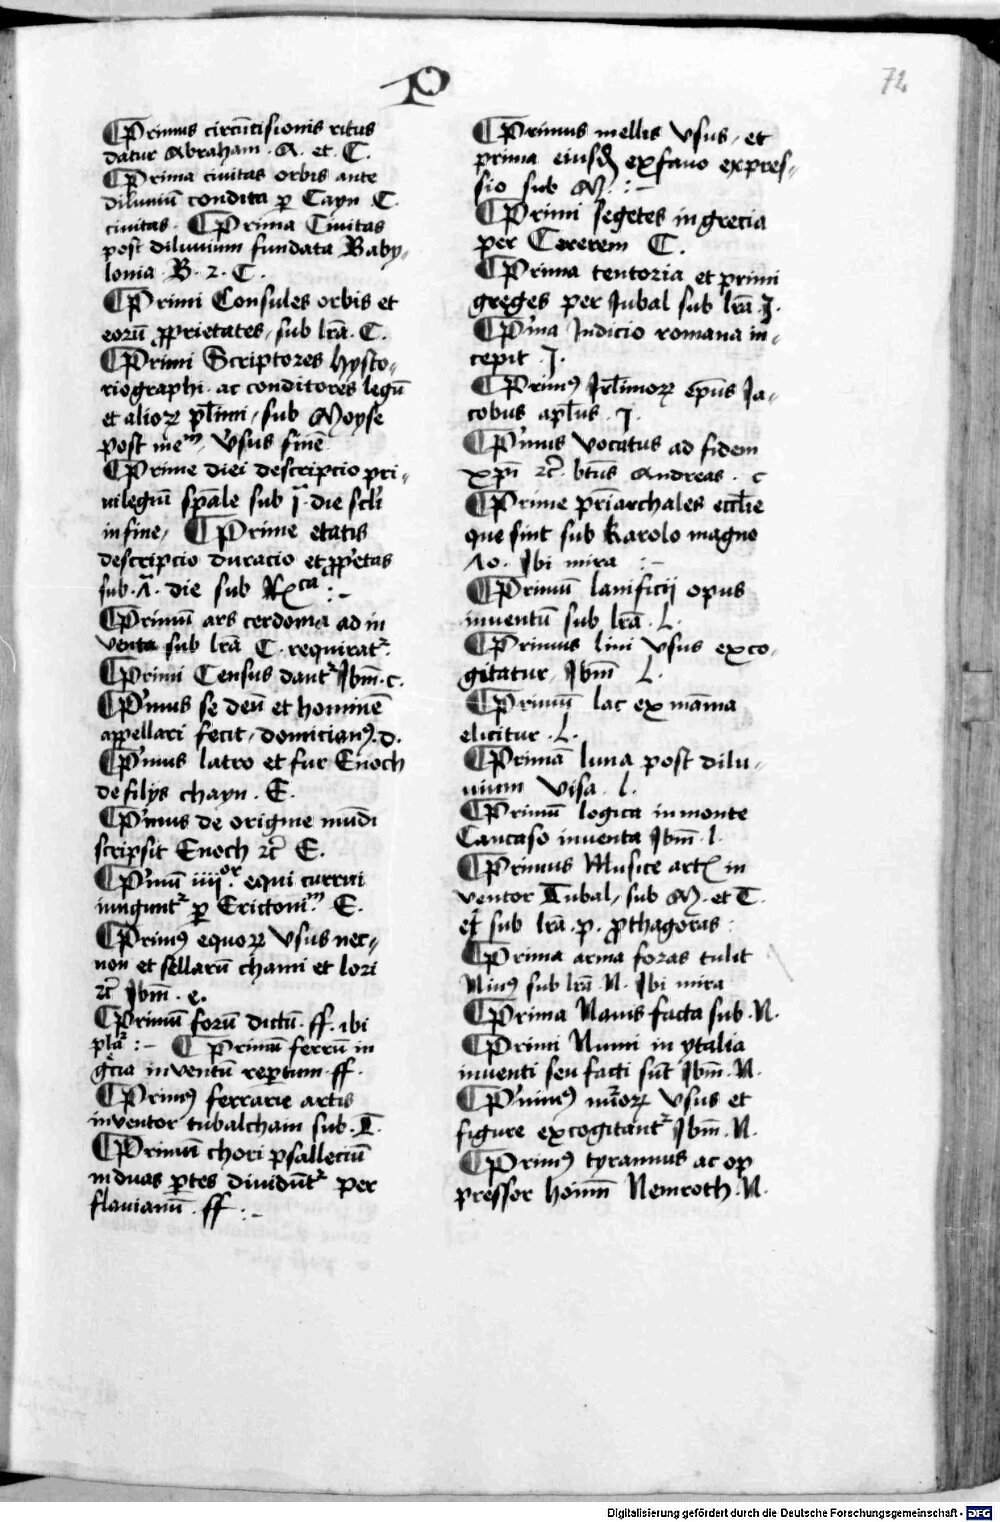 P
72
Primus circūcisionis ritus
datur Abraham . A . et . C .
Prima civitas orbis ante
diluuiū condita ꝑ Cayn C
civitas . Prima Civitas
post diluuium fundata Baby-
lonia . B . 2 . C .
Primi Consules orbis et
eorū ꝓprietates, sub lrā . C .
Primi Scriptores hysto-
riographi . ac conditores legū
et alioꝝ pl̄imi, sub Moyse
post me᷑ᵐ, Vsus finē
Prime diei descripcio pri-
uilegiū sp̄ale sub . i . die scl̄i
in fine, Prime etatis
descripcio duracio et ꝓp̄etas
sub . A . die sub
Primū ars cerdonia ad in
venta sub lrā C . requirat᷑ .
Primi Census dant᷑ Jbm̄ . c .
Pⁱmus se deū et hominē
appellari fecit, domicianꝰ . d .
Pⁱmus latro et fur Enoch
de filijs chayn . E .
Pⁱmus de origine mūdi
scripsit Enoch ꝛc̄ E .
Pⁱmū iiijᵒʳ . equi currui
iungunt᷑ ꝑ Erictoniᵐ . E .
Primꝰ equoꝝ Vsus nec-
non et sellarū chami et lori
ꝛc̄ Jbm̄ . e .
Primū forū dictū . ff . ibi
pla᷑ : – Primū ferrū in
gͨcia inventū reꝑtum . ff .
Primꝰ ferrarie artis
inventor tubalchain sub . T .
Primū chori psallēciū
in duas ꝑtes diuidūt᷑ per
flauianū . ff : –
Primus mellis Vsus, et
prima eiusdꝫ ex fauo expres-
sio sub M . : –
Primi segetes in grecia
per Cererem C .
Prima tentoria et primi
greges per Jubal sub lrā . J .
Pⁱma Judicio romana in-
cepit . J .
Primꝰ Jrl̄imoꝝ ep̄us Ja-
cobus apl̄us . J .
Pⁱmus vocatus ad fidem
xp̄i ꝛc̄ . bt̄us Andreas . c
Prime pri᷑archales eccl̄ie
que sint sub Karolo magno
10 . Jbi mira : –
Primū lanificij opus
inuentū sub lrā . L .
Primus lini Vsus exco-
gitatur, Jbm̄ L .
Primū lac ex mām̄a
elicitur . L .
Primā luna post dilu-
uium visa . l .
Primū logica in monte
Caucaso inuenta Jbm̄ . l .
Primus Musice art in
ventor Tubal, sub M . et T .
et sub lrā . p . pthagoras :
Prima arma foras tulit
Ninꝰ sub lrā . N . Jbi mira
Prima Nauis facta sub . N .
Primi Numi in ytalia
inuenti seu facti sūt Jbm̄ . N .
Pⁱmꝰ nūoꝝ Vsus et
figure excogitant᷑ Jbm̄ . N .
Primꝰ tyrannus ac op
pressor hoim̄ Nemroth . N .
Digitalisierung gefördert durch die Deutsche Forschungsgemeinschaft - DFG